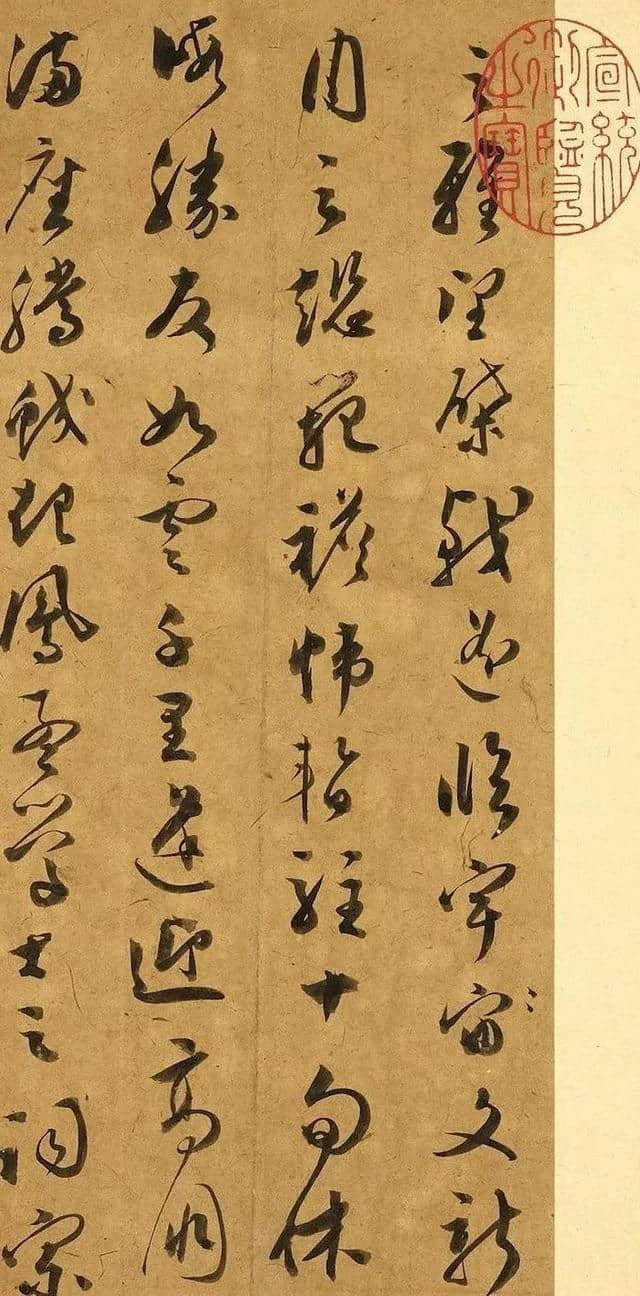 之雅望棨戟遥臨宇宙文新
州之懿範襜帷暫駐十旬休
暇勝友如雲千里逢迎高朋
滿座騰蛟起鳳孟學士之詞宗
宣統
御覽
之寶